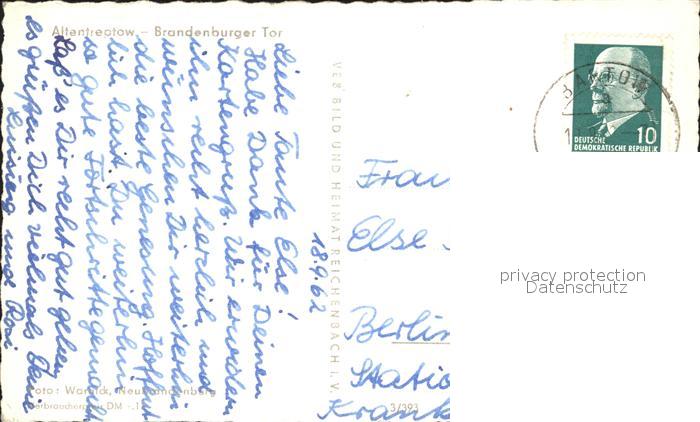 Altentreptow – Brandenburger Tor
18.9.62
Liebe Tante Else!
Habe Dank für Deinen
Kartengruß. Wir erwidern
ihn recht herzlich und
wünschen Dir weiterhin
die beste Genesung. Hoffent
lich hast Du weiterhin
so gute Fortschritte gemacht
Laß es Dir recht gut gehen,
es grüßen Dich vielmals Deine
und Rosi
VEB BILD UND HEIMAT REICHENBACH I. V.
Foto: Warnick, Neubrandenburg
3/393
DEUTSCHE
DEMOKRATISCHE REPUBLIK
10
Frau
Else
Berlin
Statio
Krank
privacy protection
Datenschutz